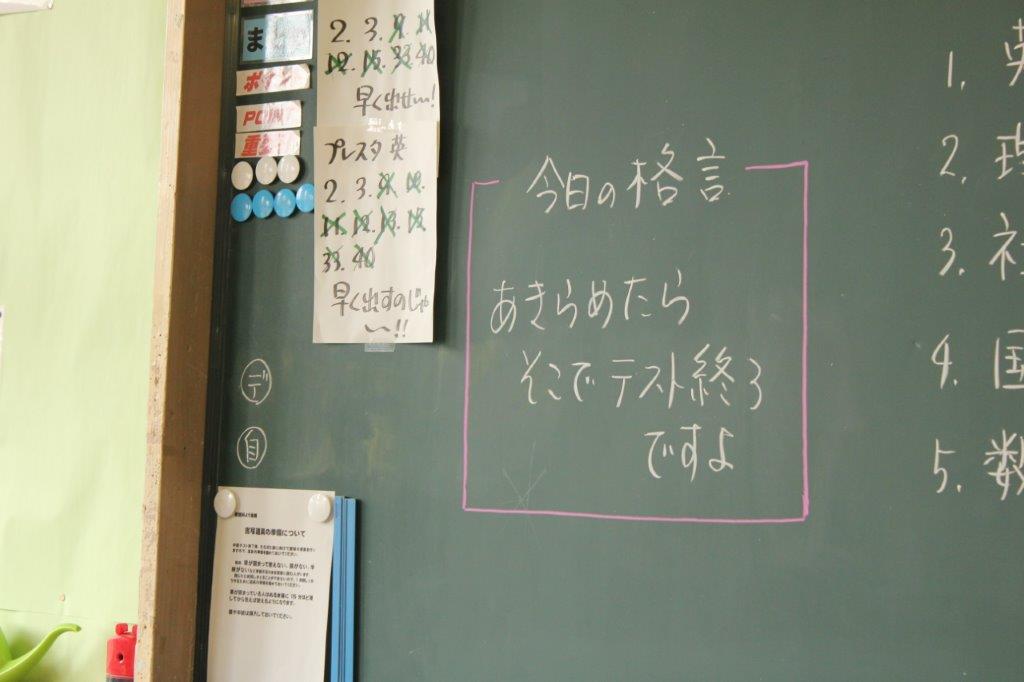 ま
ポイント
POINT
重要
2. 3. 9. 11.
12. 15. 33. 40
早く出せ〜!
プレスタ 英
2. 3. 9. 10.
11. 12. 13. 15.
33. 40
早く出すのじゃ
〜!!
デ
自
書写道具の準備について
今日の格言
あきらめたら
そこでテスト終了
ですよ
1. 英
2. 理
3. 社
4. 国
5. 数